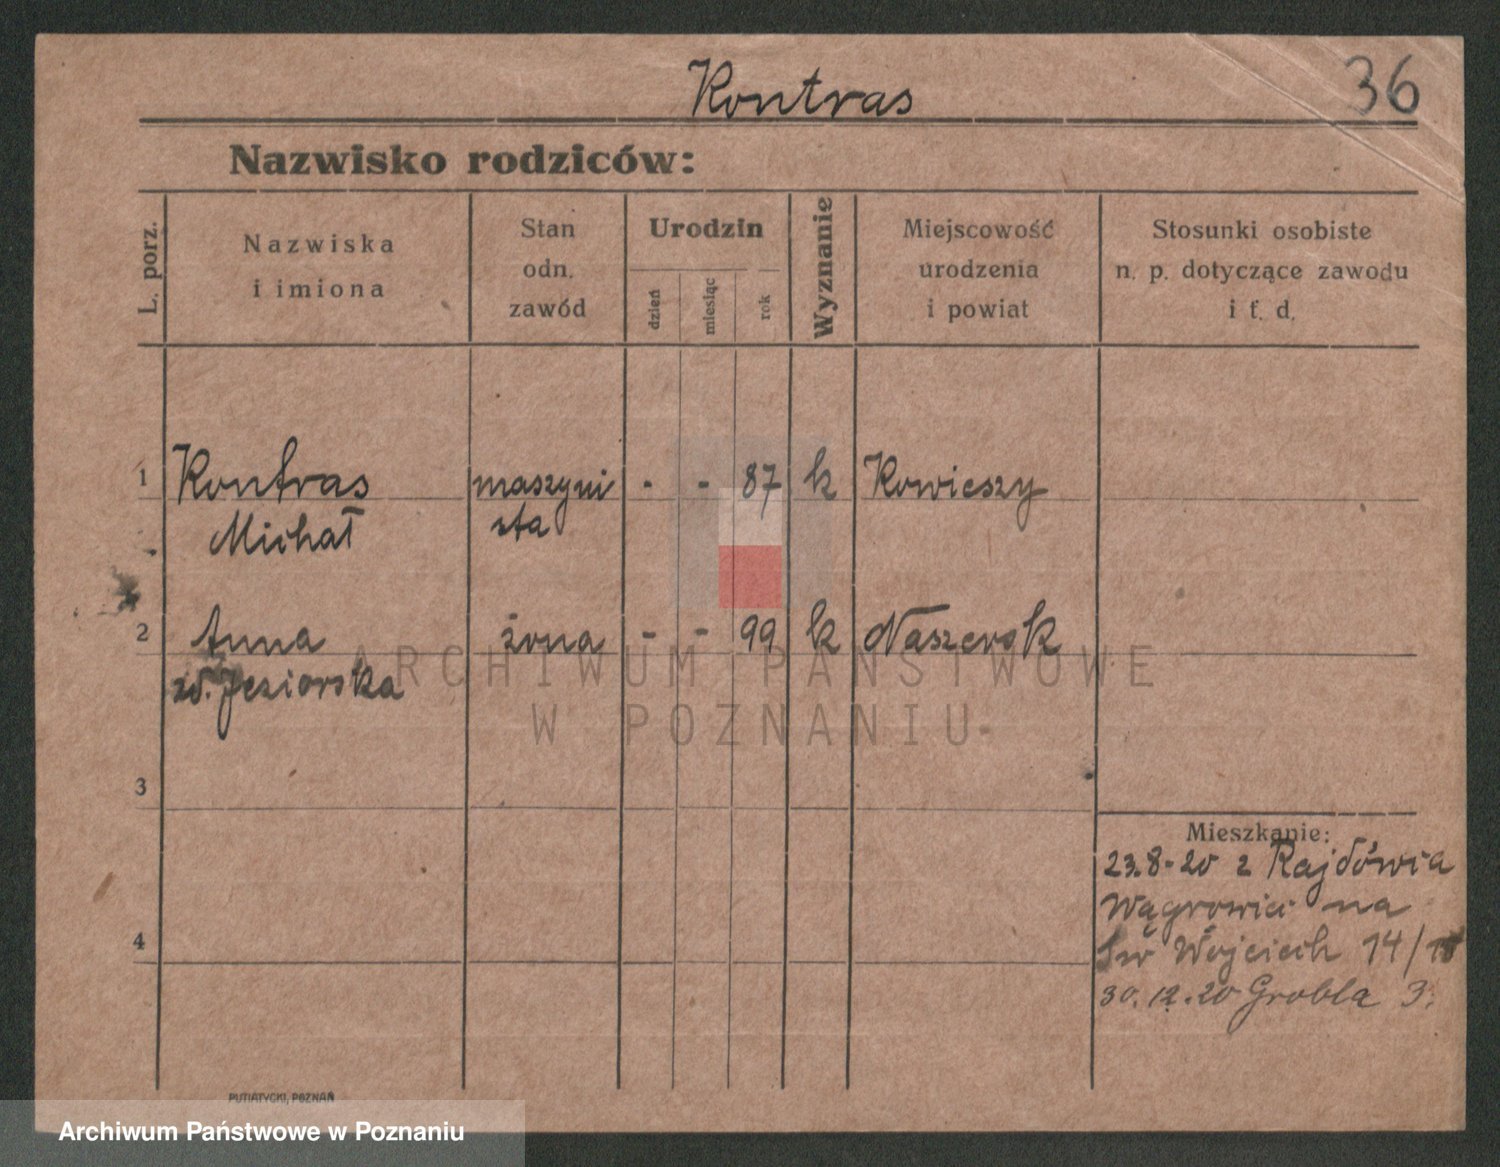 Kontras
36
Nazwisko rodziców:
L. porz.
Nazwiska
i imiona
Stan
odn.
zawód
Urodzin
dzień
miesiąc
rok
Wyznanie
Miejscowość
urodzenia
i powiat
Stosunki osobiste
n. p. dotyczące zawodu
i t. d.
1 Kontras maszyni - - 87 k Kowieszy
Michał sta
2 Anna żona - - 99 k
zd. Jeziorska
ARCHIWUM PAŃSTWOWE
W POZNANIU
3
Mieszkanie:
23.8-20 z
Wągrowiec na
4
Św Wojciech 14/
30.12.20 Grobla 3.
PUTIATYCKI, POZNAŃ
Archiwum Państwowe w Poznaniu